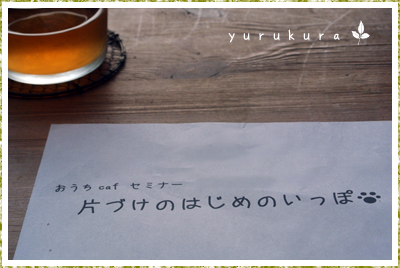 yurukura
おうちcaf セミナー
片づけのはじめのいっぽ